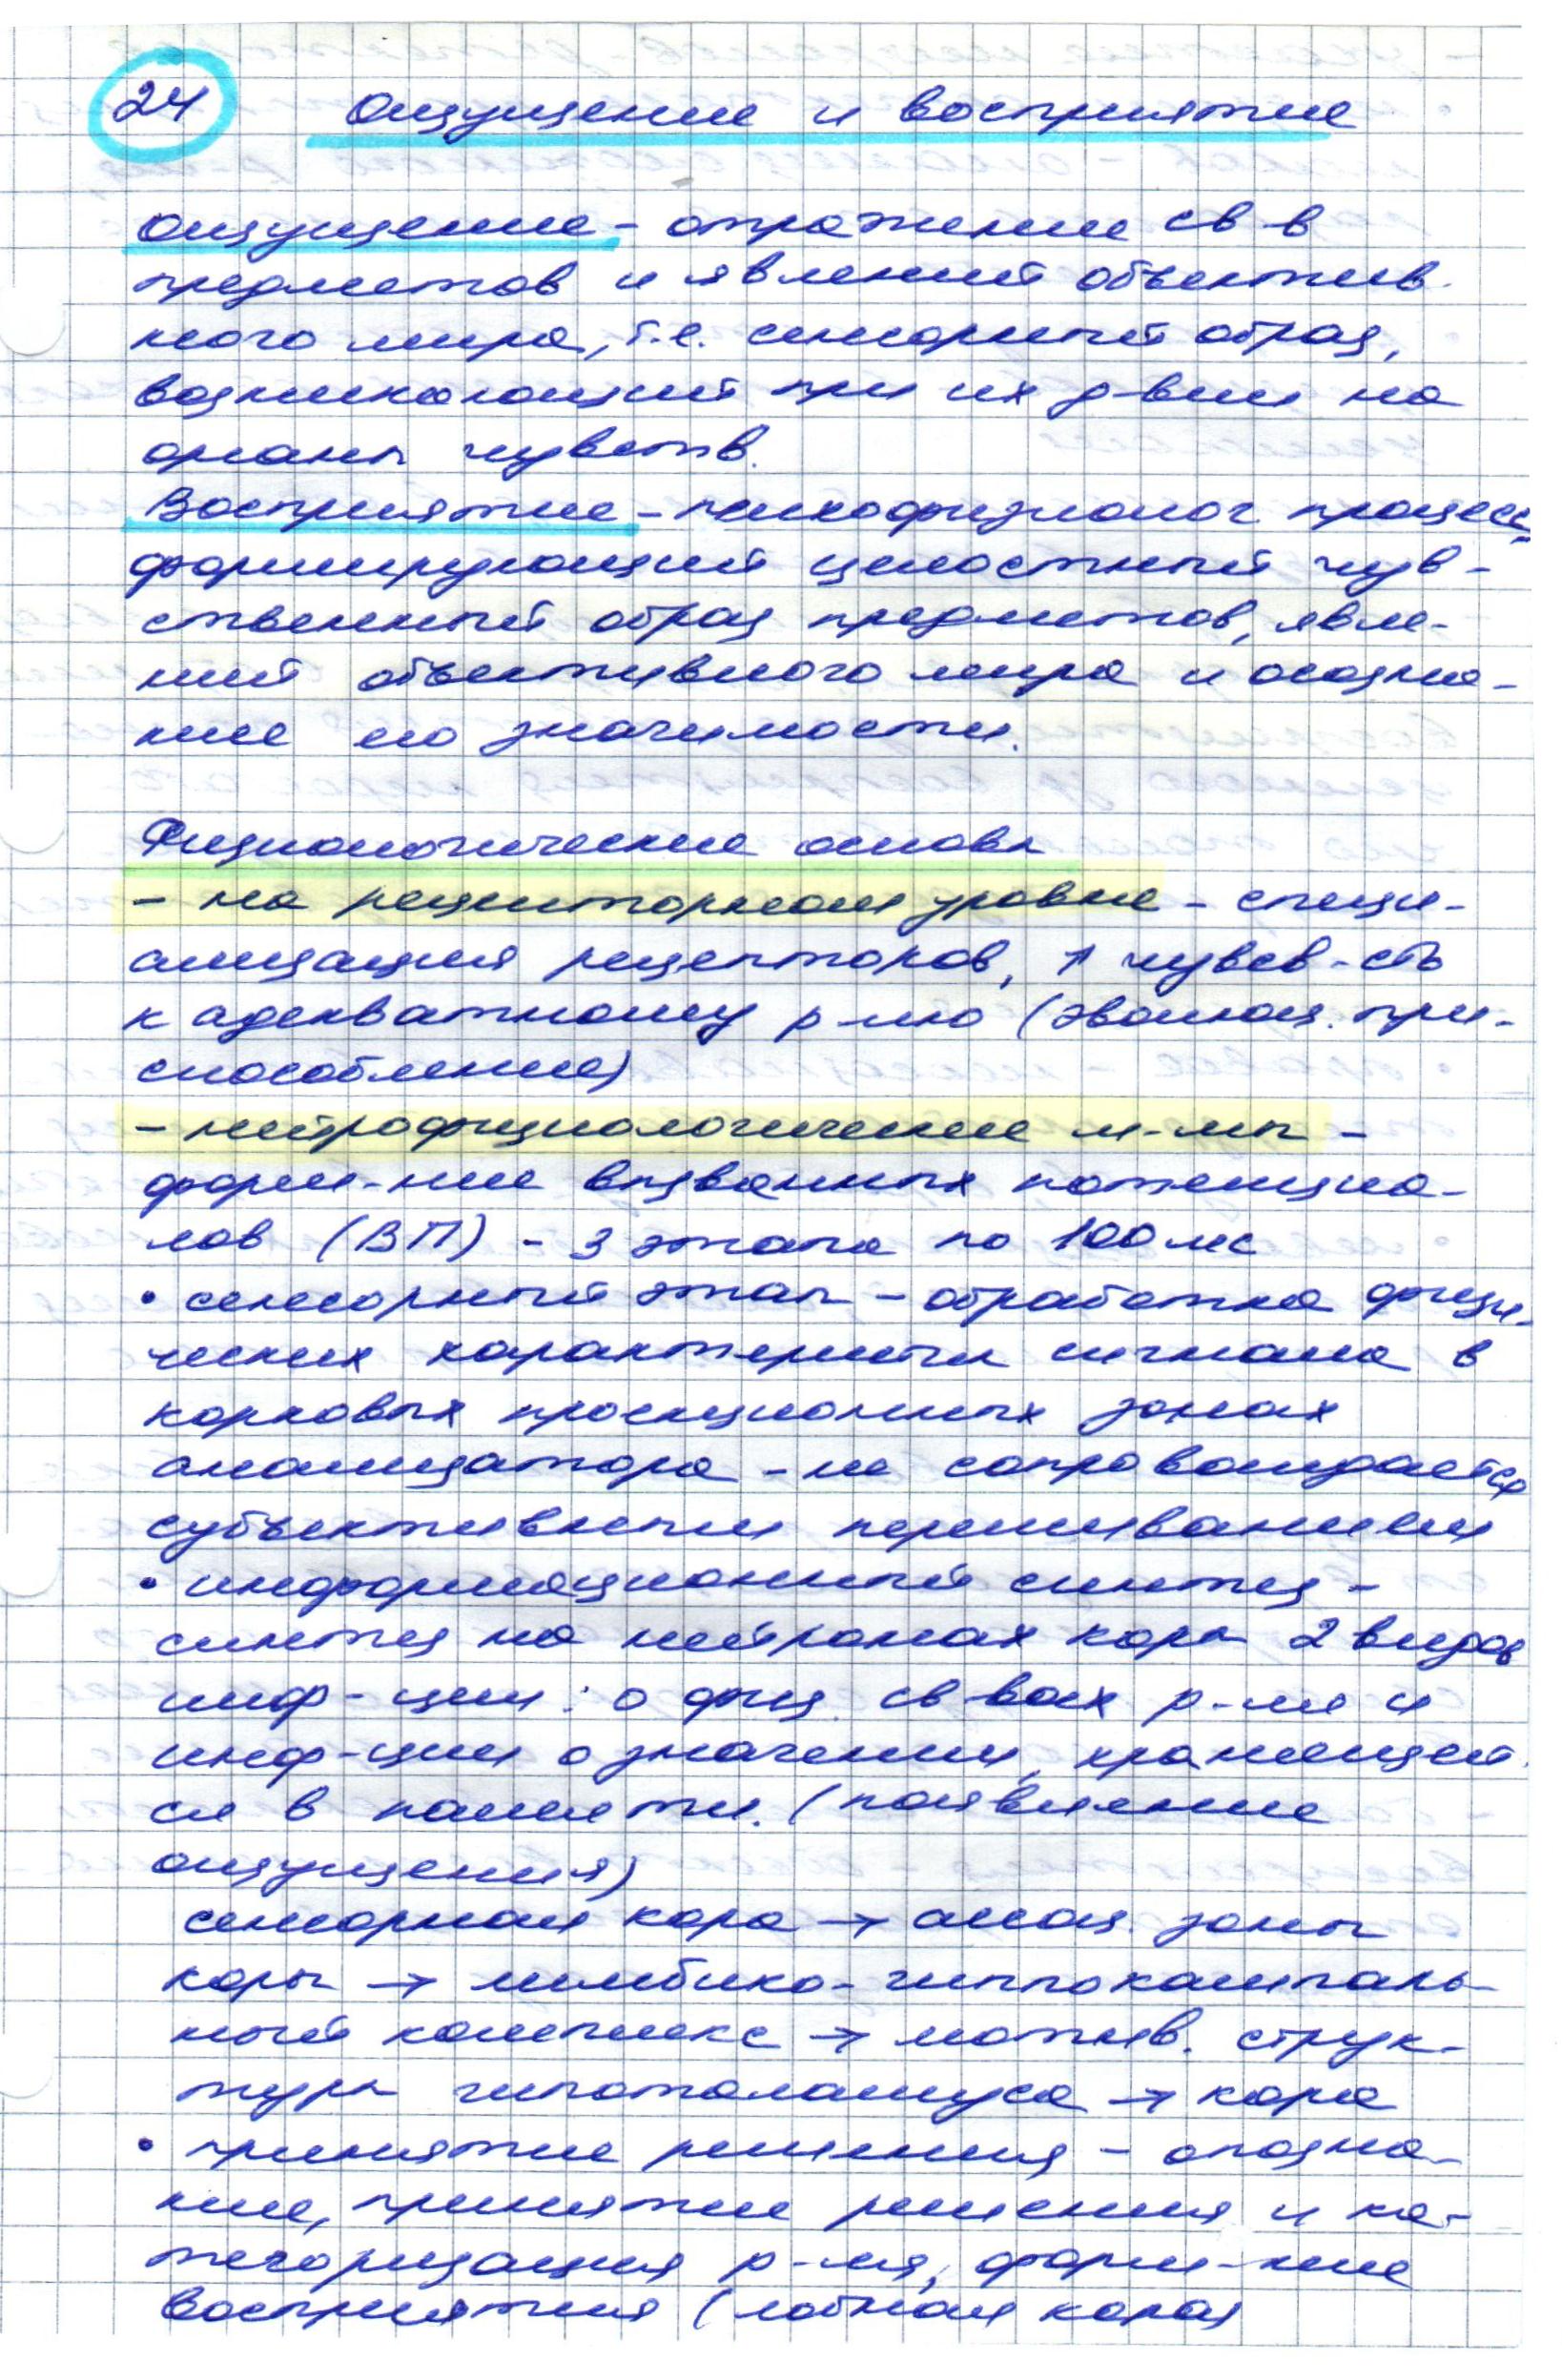 24 Ощущение и восприятие
Ощущение - отражение св-в
предметов и явлений объектив-
ного мира, т.е. сенсорный образ,
возникающий при их д-вии на
органы чувств.
Восприятие - психофизиолог процесс,
формирующий целостный чув-
ственный образ предметов, явле-
ний объективного мира и осозна-
ние его значимости.
Физиологические основы
- на рецепторном уровне - специ-
ализация рецепторов, ↑ чувсв-сть
к адекватному р-лю (эволюц. при-
способление)
- нейрофизиологические м-мы -
форм-ние вызванных потенциа-
лов (ВП) - 3 этапа по 100 мс
• сенсорный этап - обработка физи-
ческих характеристик сигнала в
корковых проекционных зонах
анализатора - не сопровождается
субъективными переживаниями
• информационный синтез -
синтез на нейронах коры 2 видов
инф-ции: о физ. св-вах р-ля и
инф-ции о значении, хранящей-
ся в памяти. (появление
ощущения)
сенсорная кора → ассоц. зоны
коры → лимбико-гиппокампаль-
ный комплекс → мотив. струк-
туры гипоталамуса → кора
• принятие решения - опозна-
ние, принятие решения и ка-
тегоризация р-ля, форм-ние
восприятия (лобная кора)